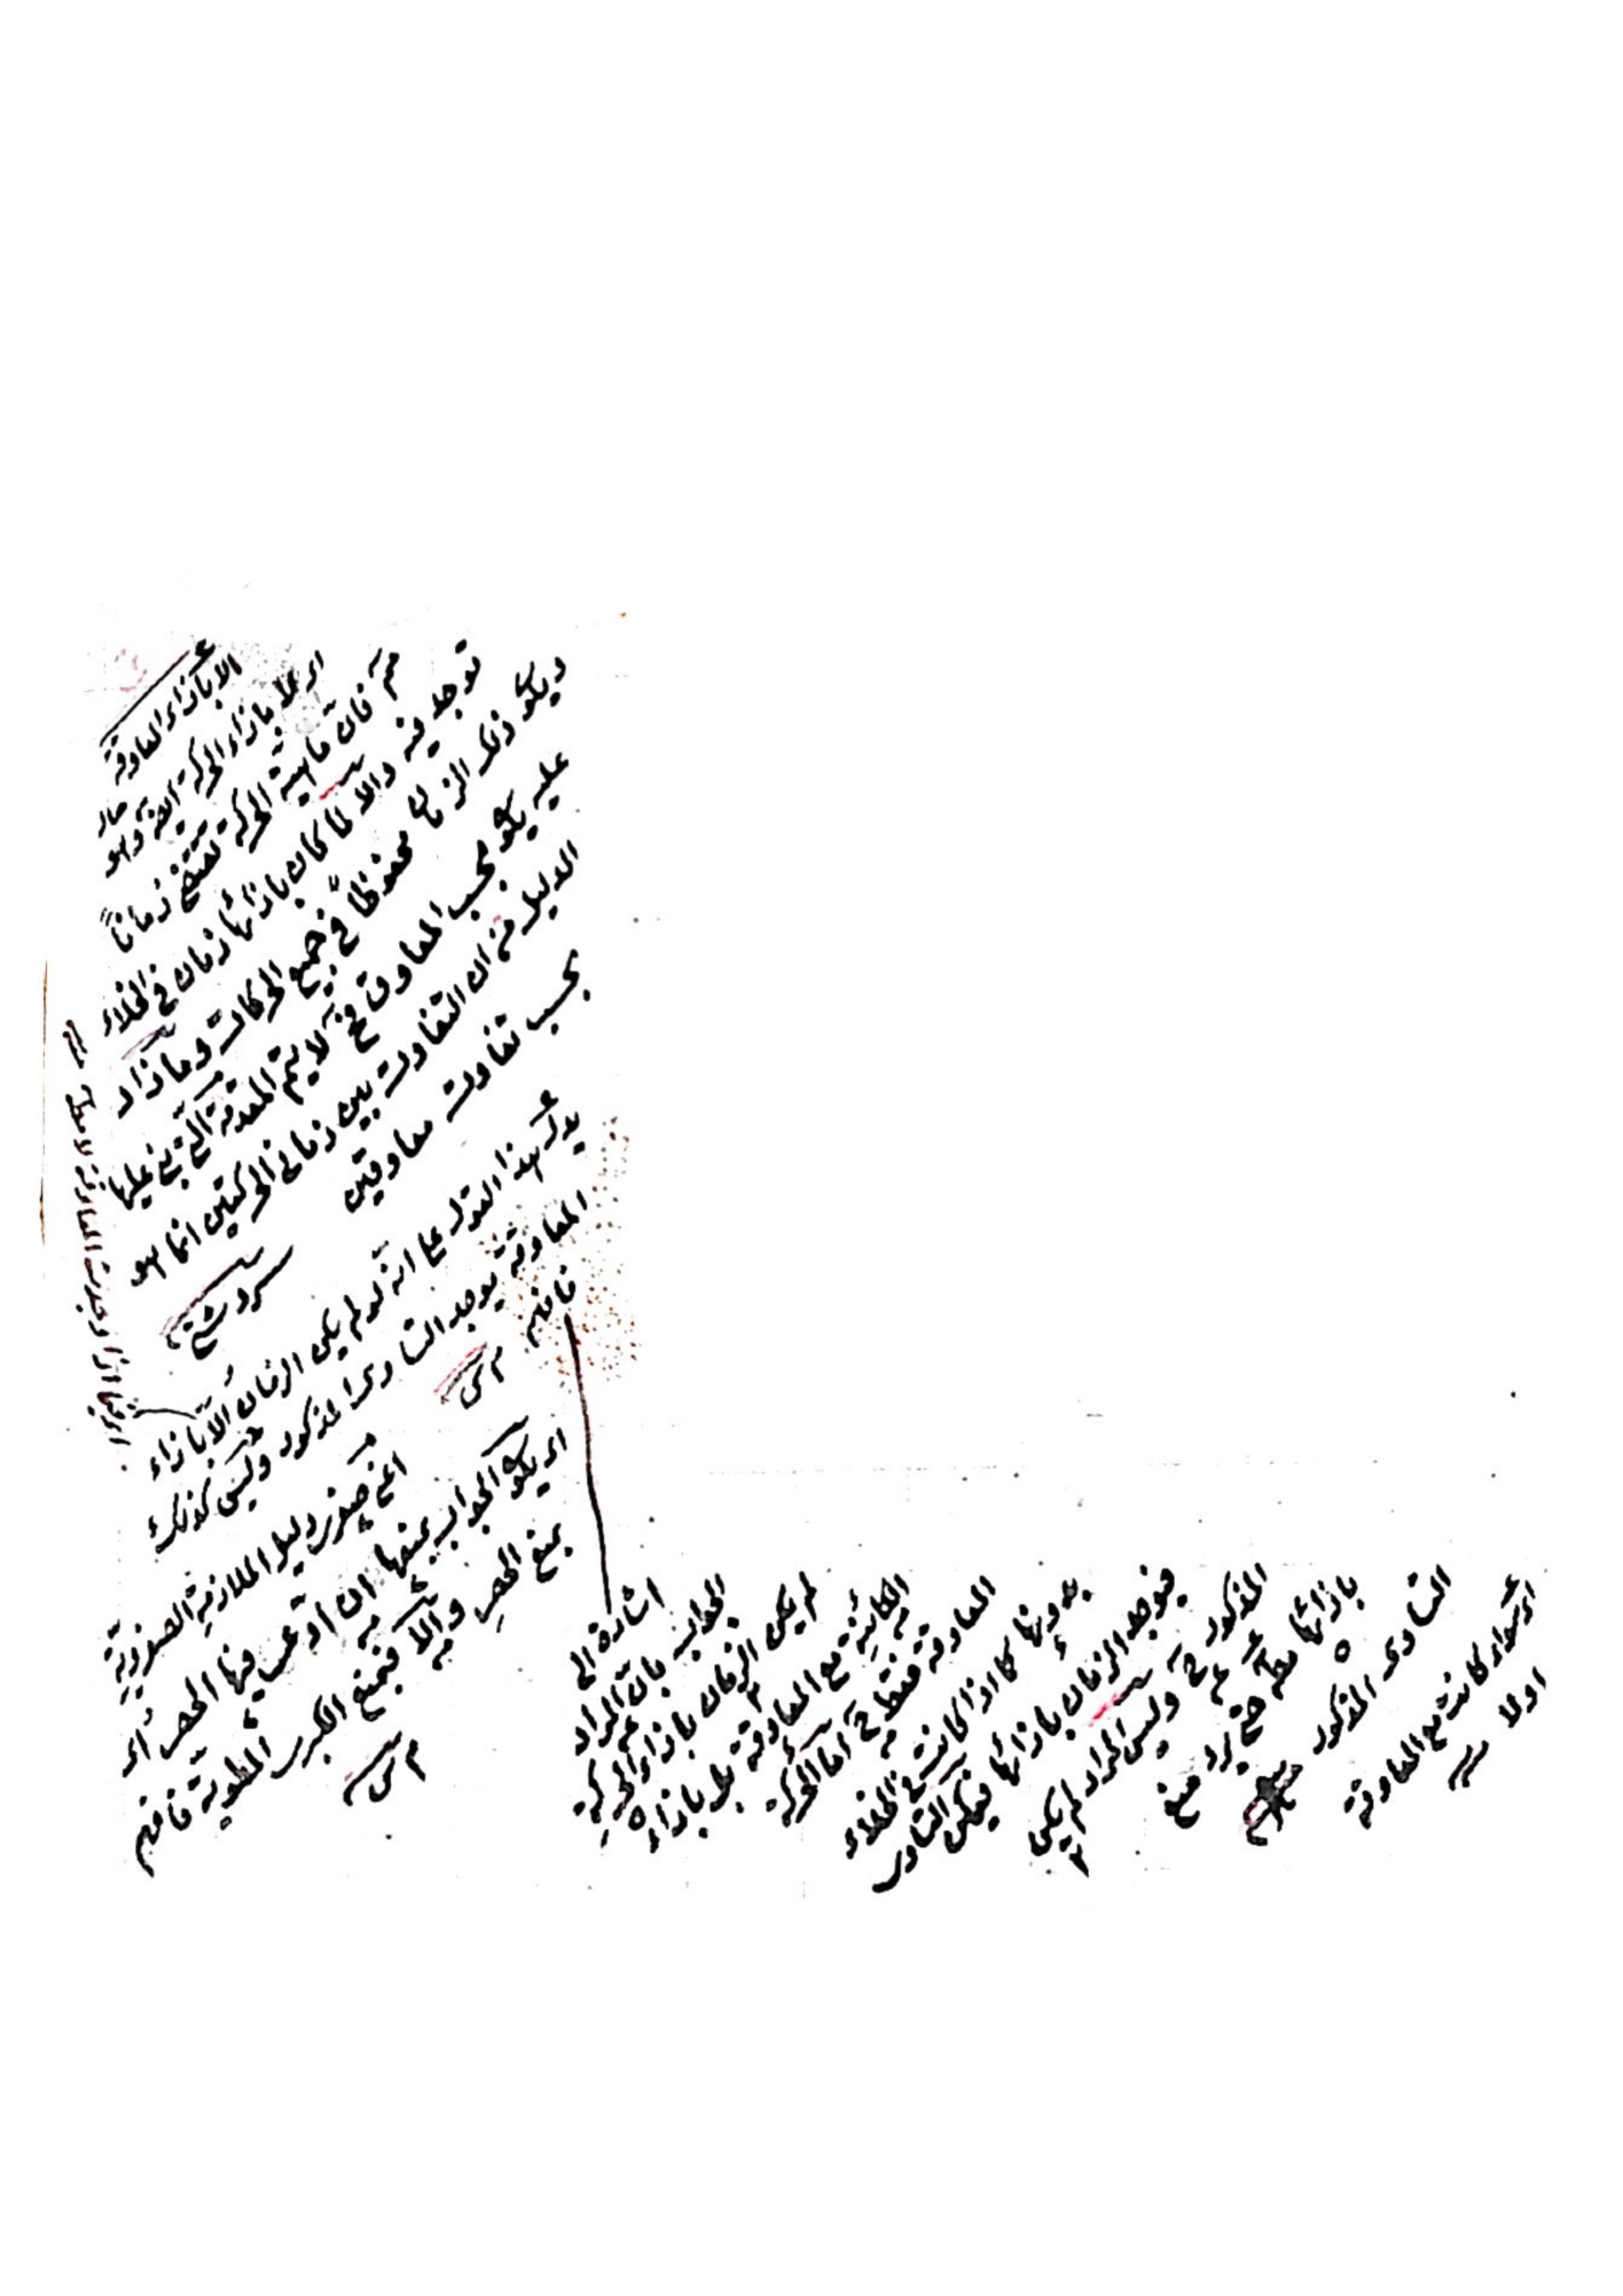 الا بازاء المعاوقة
اى لا بازاء الحركة
فان ماهية الحركة تقتضى زمانا
توجد فيه والا لما كان بازائها زمان فى الخلاء
ويكو ذلك الزمان محفوظا فى جميع الحركات وما زاد
عليه يكو بحسب المعاوق فح لا يتم المقدمة التى بنى عليها
الدليل من ان التفاوت بين زمانى الحركتين انما هو
بحسب تفاوت معاوقين
يدل هذا القول على انه لو لم يكن الزمان الا بازاء
المعاوقة يوجد التساوى المذكور وليس كذلك
فافهم
اعنى صغرى دليل الملازمة الصغروية
اى يكو الجواب بمنعها ان اوعب فيها الحصر اى
بمنع الحصر والا فبمنع الكبرى المطوية فافهم
اشارة الى
الجواب بان المراد
لم يكن الزمان بازاء الحركة
الكائنة مع المعاوقة بل بازاء
المعاوقة فقط ح اما الحركة
بدونها كما اذا كانت فى الخلاء
فيوجد الزمان بازائها فيمكن التساوى
المذكور ح وليس المراد لم يكن
بازائها مط حتى يرد منع
التساوى المذكور
اى سواء كانت مع المعاوقة
اولا